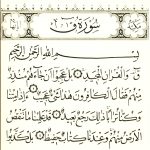 سورة ق
بسم الله الرحمن الرحيم
ق والقرآن المجيد بل عجبوا أن جاءهم منذر
منهم فقال الكافرون هذا شيء عجيب أإذا متنا
وكنا ترابا ذلك رجع بعيد قد علمنا ما تنقص
الأرض منهم وعندنا كتاب حفيظ بل كذبوا